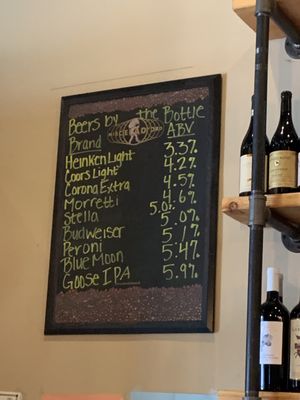 Beers by the Bottle
Brand ABV
Heinken Light 3.3%
Coors Light 4.2%
Corona Extra 4.5%
Morretti 4.6%
Stella 5.0%
Budweiser 5.0%
Peroni 5.1%
Blue Moon 5.4%
Goose IPA 5.9%